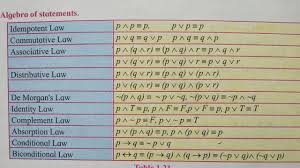 Algebra of statements.
Idempotent Law p ∧ p ≡ p, p ∨ p ≡ p
Commutative Law p ∨ q ≡ q ∨ p p ∧ q ≡ q ∧ p
Associative Law p ∧ (q ∧ r) ≡ (p ∧ q) ∧ r ≡ p ∧ q ∧ r
p ∨ (q ∨ r) ≡ (p ∨ q) ∨ r ≡ p ∨ q ∨ r
Distributive Law p ∧ (q ∨ r) ≡ (p ∧ q) ∨ (p ∧ r)
p ∨ (q ∧ r) ≡ (p ∨ q) ∧ (p ∨ r)
De Morgan's Law ~(p ∧ q) ≡ ~p ∨ ~q, ~(p ∨ q) ≡ ~p ∧ ~q
Identity Law p ∧ T ≡ p, p ∧ F ≡ F, p ∨ F ≡ p, p ∨ T ≡ T
Complement Law p ∧ ~p ≡ F, p ∨ ~p ≡ T
Absorption Law p ∨ (p ∧ q) ≡ p, p ∧ (p ∨ q) ≡ p
Conditional Law p → q ≡ ~p ∨ q
Biconditional Law p ↔ q ≡ (p → q) ∧ (q → p) ≡ (~p ∨ q) ∧ (~q ∨ p)
Table 1.21